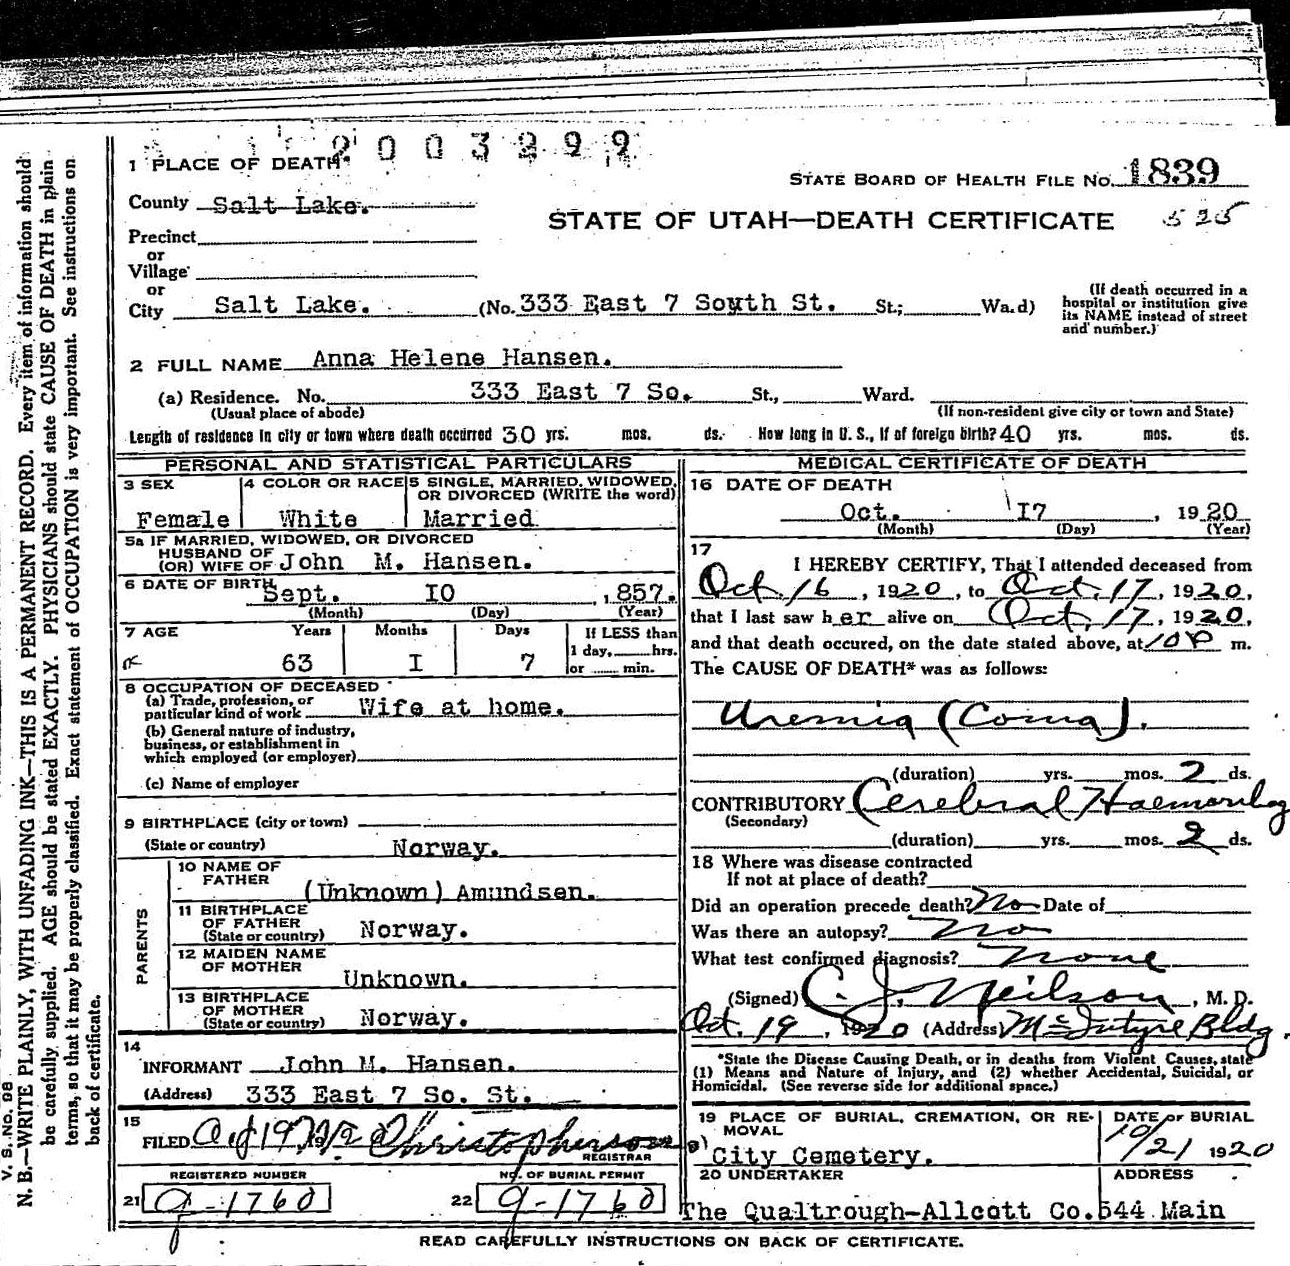 2003299
1 PLACE OF DEATH
STATE BOARD OF HEALTH FILE NO. 1839
County Salt Lake.
STATE OF UTAH—DEATH CERTIFICATE 525
Precinct
or
Village
or
City Salt Lake. (No. 333 East 7 South St. St.; Wa.d)
(If death occurred in a
hospital or institution give
its NAME instead of street
and number.)
2 FULL NAME Anna Helene Hansen.
(a) Residence. No. 333 East 7 So. St., Ward.
(Usual place of abode) (If non-resident give city or town and State)
Length of residence in city or town where death occurred 30 yrs. mos. ds. How long in U. S., if of foreign birth? 40 yrs. mos. ds.
PERSONAL AND STATISTICAL PARTICULARS
3 SEX
Female
4 COLOR OR RACE
White
5 SINGLE, MARRIED, WIDOWED,
OR DIVORCED (WRITE the word)
Married
5a IF MARRIED, WIDOWED, OR DIVORCED
HUSBAND OF
(OR) WIFE OF John M. Hansen.
6 DATE OF BIRTH Sept. I0 , 1857.
(Month) (Day) (Year)
7 AGE Years Months Days If LESS than
1 day, hrs.
63 I 7 or min.
8 OCCUPATION OF DECEASED
(a) Trade, profession, or
particular kind of work Wife at home.
(b) General nature of industry,
business, or establishment in
which employed (or employer)
(c) Name of employer
9 BIRTHPLACE (city or town)
(State or country) Norway.
PARENTS
10 NAME OF
FATHER (Unknown) Amundsen.
11 BIRTHPLACE
OF FATHER
(State or country) Norway.
12 MAIDEN NAME
OF MOTHER Unknown.
13 BIRTHPLACE
OF MOTHER
(State or country) Norway.
14
INFORMANT John M. Hansen.
(Address) 333 East 7 So. St.
15
FILED 19 Christopherson
REGISTRAR
REGISTERED NUMBER NO. OF BURIAL PERMIT
21 g-1760 22 g-1760
MEDICAL CERTIFICATE OF DEATH
16 DATE OF DEATH
Oct. I7 , 1920
(Month) (Day) (Year)
17
I HEREBY CERTIFY, That I attended deceased from
Oct 16, 1920, to Oct. 17, 1920,
that I last saw her alive on Oct. 17, 1920,
and that death occured, on the date stated above, at 10 P m.
The CAUSE OF DEATH* was as follows:
Uremia (Coma).
(duration) yrs. mos. 2 ds.
CONTRIBUTORY Cerebral Haemorrhag
(Secondary)
(duration) yrs. mos. 2 ds.
18 Where was disease contracted
If not at place of death?
Did an operation precede death? No Date of
Was there an autopsy? No
What test confirmed diagnosis? None
(Signed) C. J. Neilson, M. D.
Oct. 19, 1920 (Address) McIntyre Bldg.
*State the Disease Causing Death, or in deaths from Violent Causes, state
(1) Means and Nature of Injury, and (2) whether Accidental, Suicidal, or
Homicidal. (See reverse side for additional space.)
19 PLACE OF BURIAL, CREMATION, OR RE-
MOVAL
City Cemetery.
DATE OF BURIAL
10/21 1920
20 UNDERTAKER ADDRESS
The Qualtrough-Allcott Co. 544 Main
READ CAREFULLY INSTRUCTIONS ON BACK OF CERTIFICATE.
V. S. No. 98
N. B.—WRITE PLAINLY, WITH UNFADING INK—THIS IS A PERMANENT RECORD. Every item of information should
be carefully supplied. AGE should be stated EXACTLY. PHYSICIANS should state CAUSE OF DEATH in plain
terms, so that it may be properly classified. Exact statement of OCCUPATION is very important. See instructions on
back of certificate.